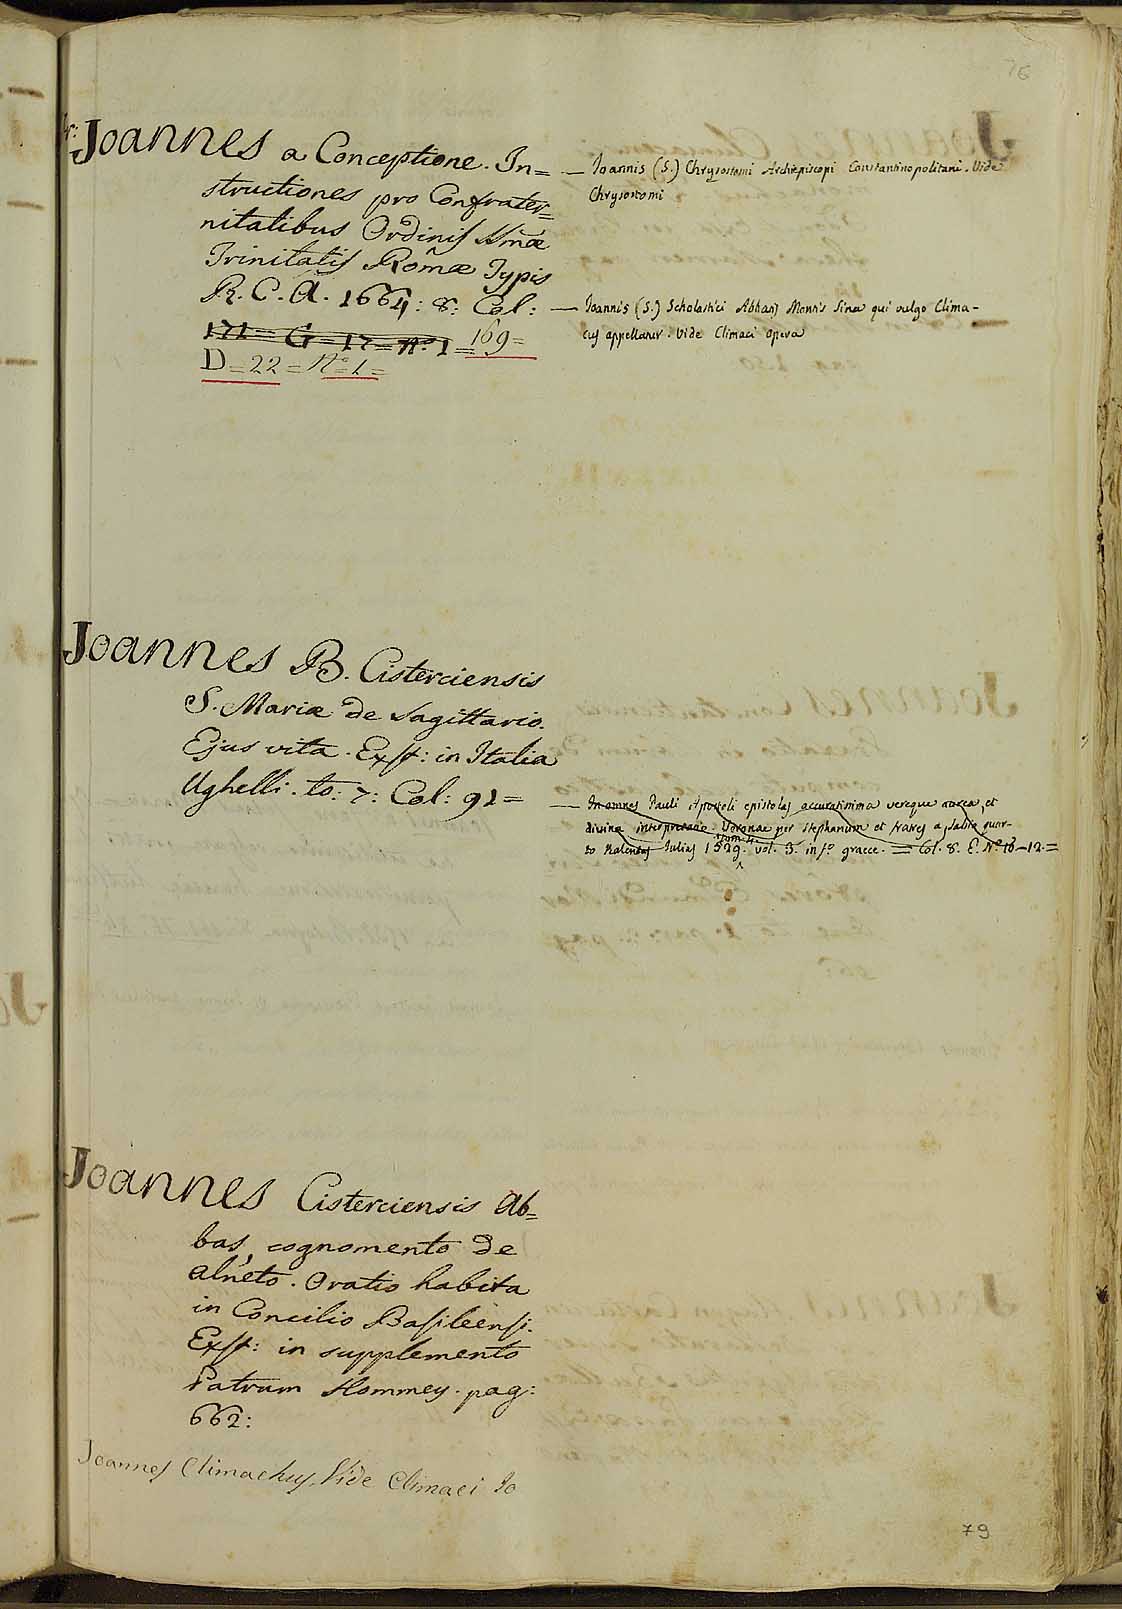 76
fr: Joannes a Conceptione. In=
structiones pro Confrater=
nitatibus Ordinis SSmæ
Trinitatis Romæ Typis
R. C. A. 1664: 8: Col:
171 = G = 17 = Nº. 1 = 169 =
D = 22 = Nº 1 =
— Joannis (S.) Chrysostomi Archiepiscopi Constantinopolitani. Vide
Chrysostomi
— Joannis (S.) Scholastici Abbatis Montis Sinæ qui vulgo Clima-
cus appellatur. Vide Climaci Opera
Joannes B. Cisterciensis
S. Mariæ de Sagittario.
Ejus vita. Exst: in Italia
Ughelli. to: 7: Col: 91 =
— In omnes Pauli Apostoli epistolas accuratissima vereque aurea, et
divina interpretatio. Veronae per Stephanum et fratres a Sabio quar-
to Kalendas Julias 1529. tom. 4. vol. 3. in fº. graece. = Col. 8. E. Nº 10-12. =
Joannes Cisterciensis Ab=
bas, cognomento de
alneto. Oratio habita
in Concilio Basileensi.
Exst: in supplemento
Patrum Hommey. pag:
662:
Joannes Climachus, Vide Climaci Jo
79